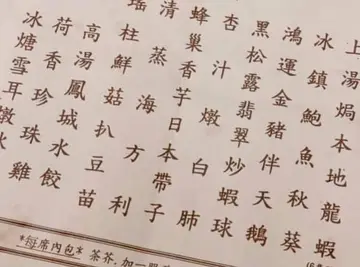 上湯焗本地龍蝦
冰鎮鮑魚秋葵
鴻運金豬伴天鵝
黑松露翡翠炒蝦球
杏汁燉白肺
蜂巢香芋日本帶子
清蒸海方利
瑤柱鮮菇扒豆苗
高湯鳳城水餃
荷香珍珠雞
冰糖雪耳燉
*每席內包* 茶芥, 加一